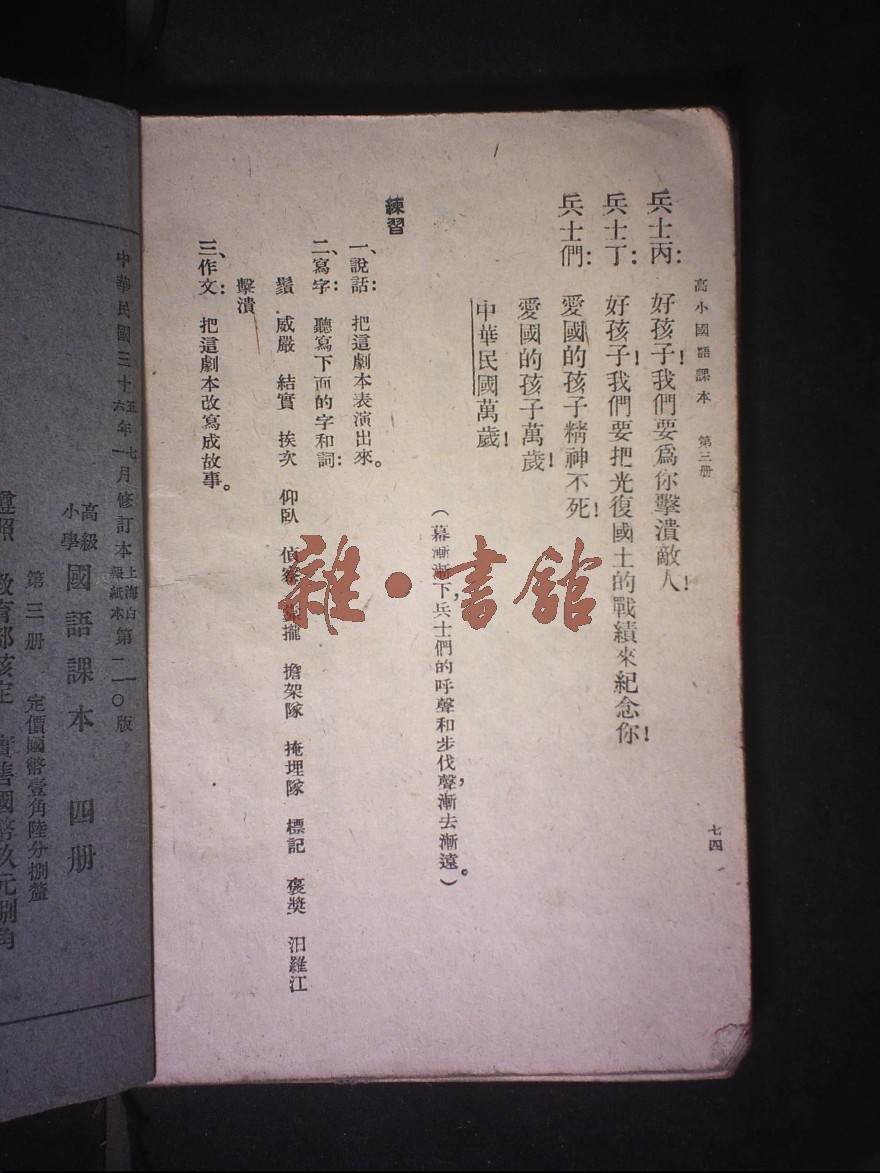 高小國語課本　第三册
七四
兵士丙：　好孩子！我們要爲你擊潰敵人！
兵士丁：　好孩子！我們要把光復國土的戰績來紀念你！
兵士們：　愛國的孩子精神不死！
愛國的孩子萬歲！
中華民國萬歲！
（幕漸漸下，兵士們的呼聲和步伐聲，漸去漸遠。）
練習
一、說話：　把這劇本表演出來。
二、寫字：　聽寫下面的字和詞：
鬚　威嚴　結實　挨次　仰臥　偵察　攏　擔架隊　掩埋隊　標記　褒獎　汨羅江
擊潰
三、作文：　把這劇本改寫成故事。
雜·書館
中華民國三十五年七月修訂本上海白報紙本第二一〇版
六一
高級小學　國語課本　四册
第三册　定價國幣壹角陸分捌釐
遵照　教育部核定　實售國幣玖元捌角